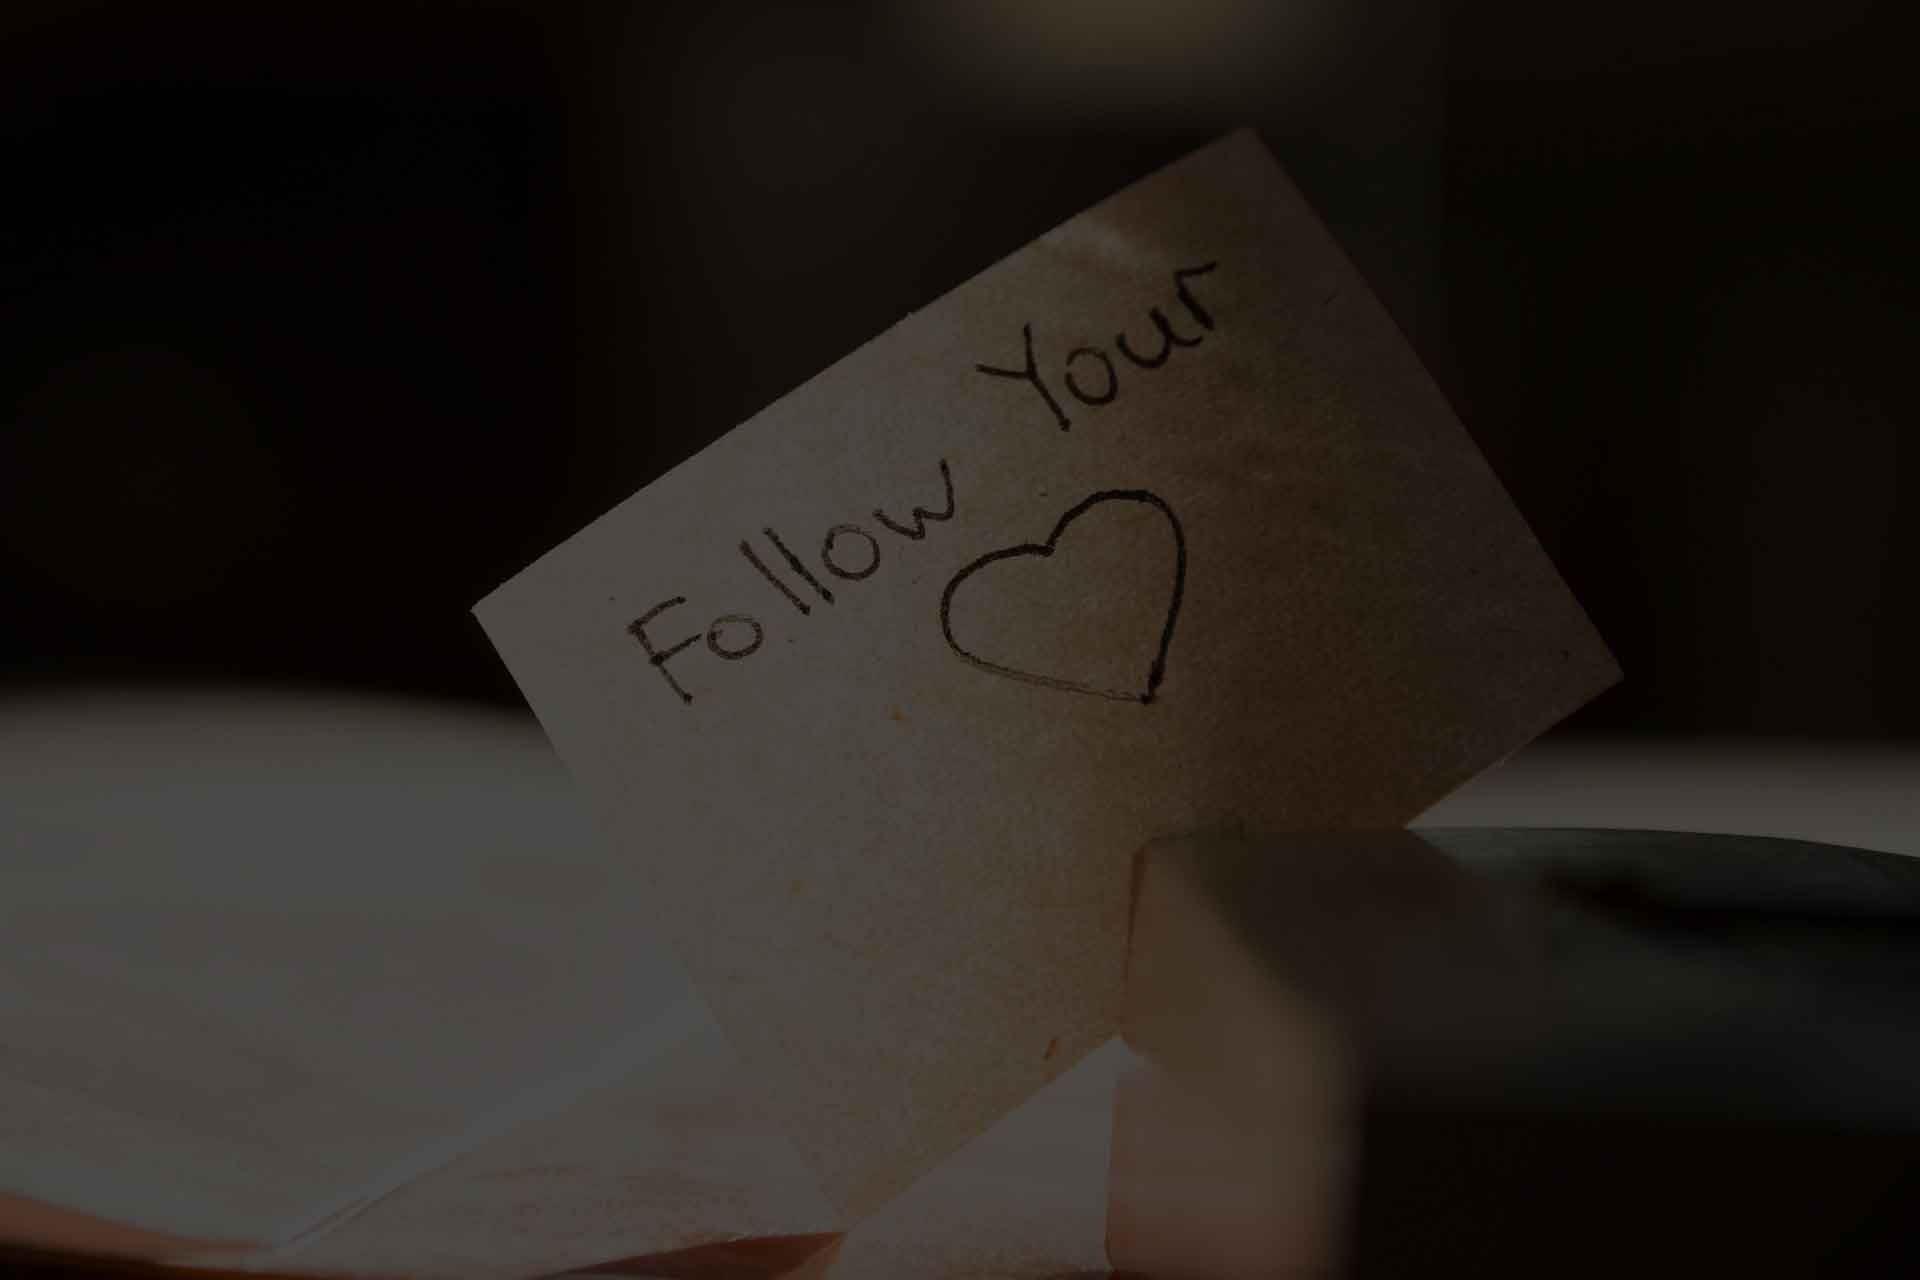 Follow Your